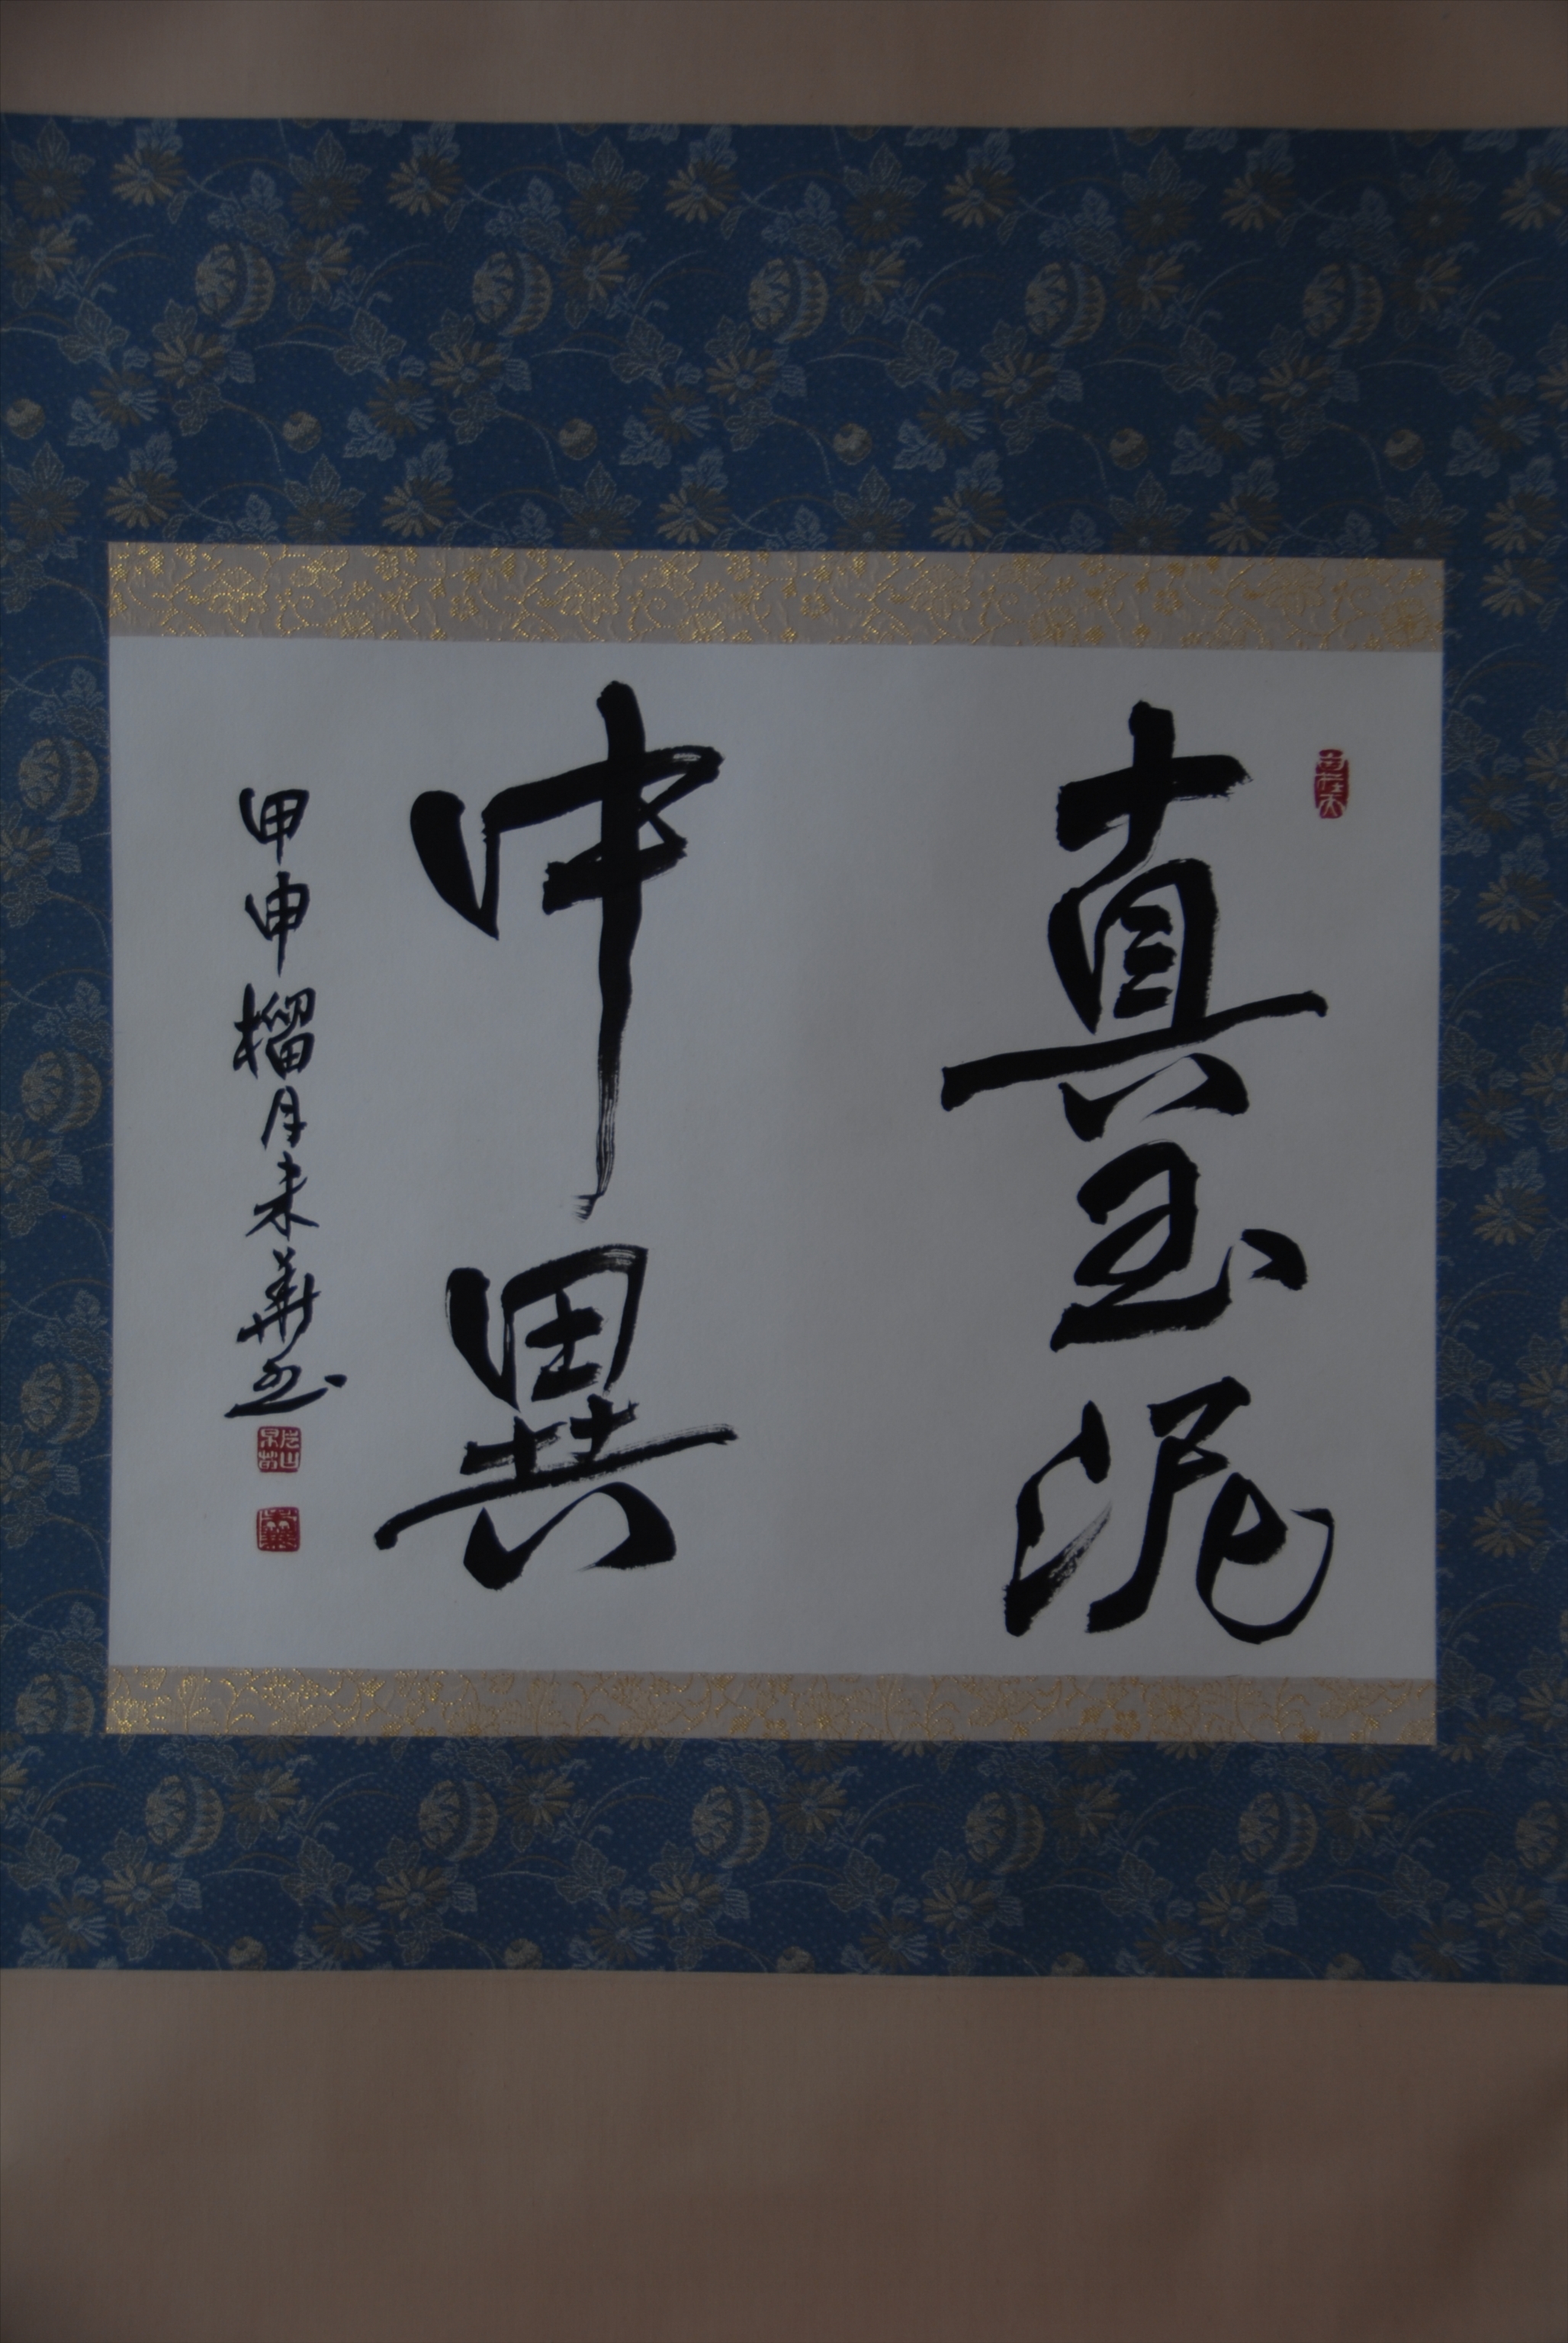 真玉泥
中異
甲申榴月未華書